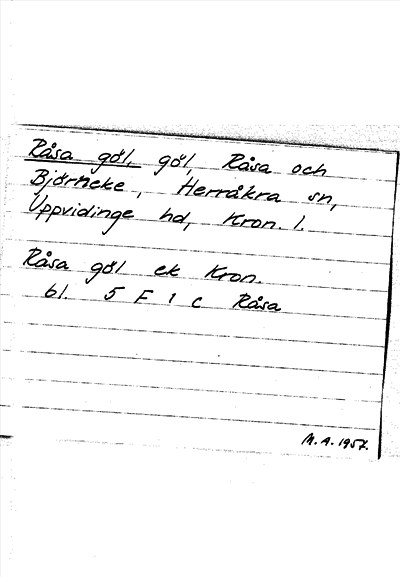 Råsa göl, göl, Råsa och
Björnicke, Herråkra sn,
Uppvidinge hd, Kron. l.
Råsa göl ek Kron.
bl. 5 F 1 c Råsa
M.A. 1957.